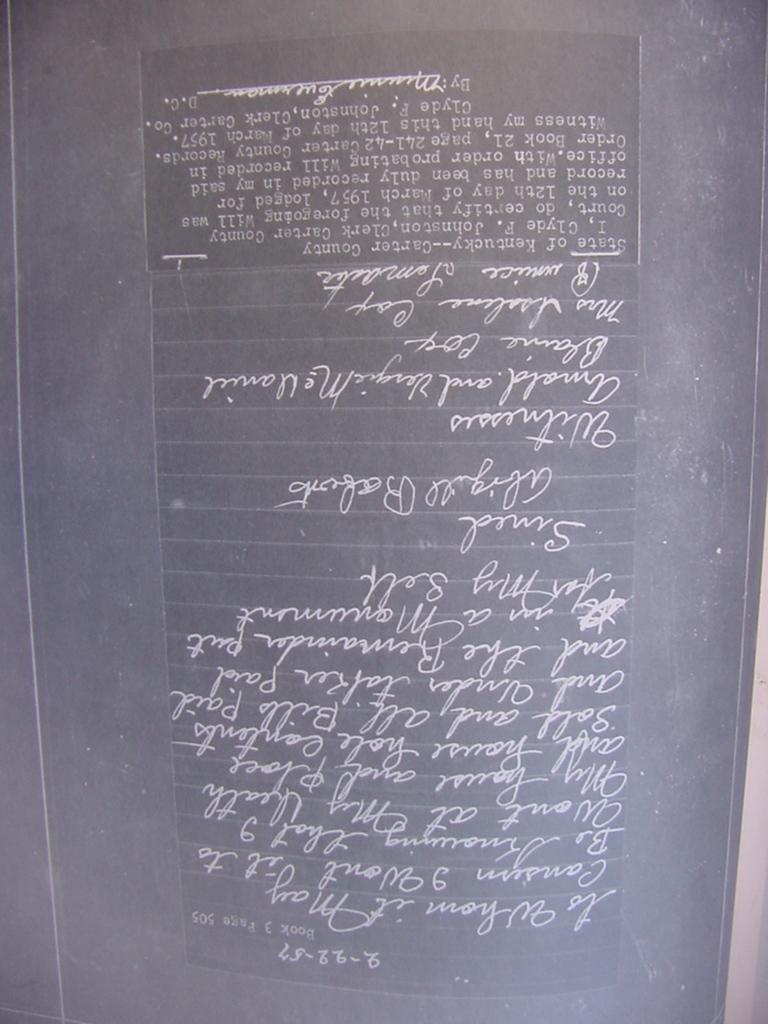 2-22-57
Book 3 Page 505
to Whom it May
Consern I Wont it to
Be Knowing that I
Wont at My Death
My house and place
and house hole contents
Sold and all Bills Paid
and Under taker paid
and the Remainder put
in a Monument
for My Self
Sined
Abigill Roberts
Witnesses
Arnold and Vergie McDaniel
Blaine Cox
Mrs Isolene Cox
Bunnice Lemaster
State of Kentucky--Carter County
I, Clyde F. Johnston, Clerk Carter County
Court, do certify that the foregoing Will was
on the 12th day of March 1957, lodged for
record and has been duly recorded in my said
office. With order probating Will recorded in
Order Book 21, page 241-42 Carter County Records.
Witness my hand this 12th day of March 1957.
Clyde F. Johnston, Clerk Carter Co.
By: Minnie Everman D.C.